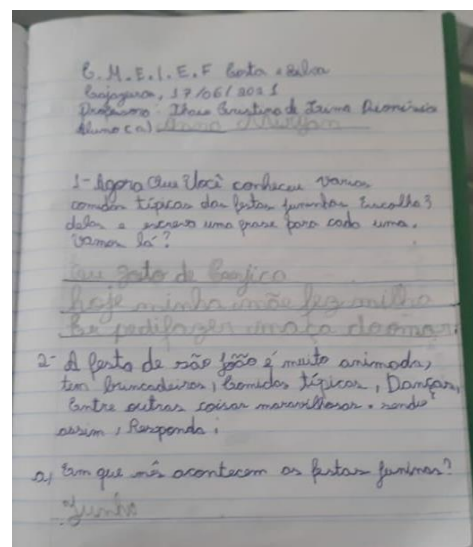 E.M.E.I.E.F Costa e Silva
Cajazeiras, 17/06/2021
Professora: Thais Cristina de Lima Dionísio
Aluno(a) Anna
1- Agora Que Você conheceu varias
comidas típicas das festas juninas Escolha 3
delas e escreva uma frase para cada uma.
Vamos lá?
Eu gosto de
hoje minha mãe fez milho
2- A festa de são joão é muito animada,
tem brincadeiras, Comidas típicas, Danças,
Entre outras coisas maravilhosas. sendo
assim, Responda:
a) Em que mês acontecem as festas juninas?
Junho